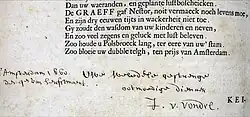 Dan uw waeranden, en geplante lustbolchicken.
De GRAEFF gaf Nestor, noit vermaeck noch levens moe,
En zijn dry eeuwen tijts in wackerheit niet toe.
Gy zoudt den wasdom van uw kinderen en neven,
En zoo veel zegens en geluck met lust beleven
Zoo houde u Polsbroeck lang, ter eere van uw' stam.
Zoo bloeie uw dubble telgh, ten prijs van Amsterdam.
KEI-
Amsterdam 1660.
Uwe
ootmoedige dienaer
J. v. Vondel